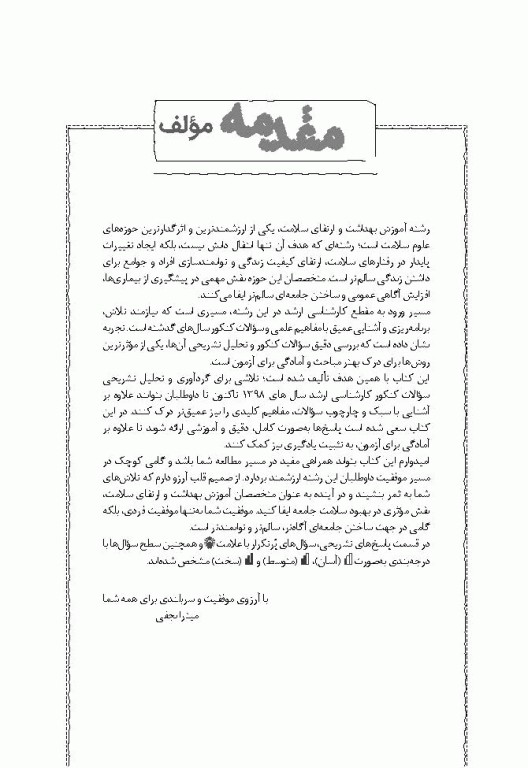 مقدمه مؤلف
رشته آموزش بهداشت و ارتقای سلامت، یکی از ارزشمندترین و اثرگذارترین حوزه‌های
علوم سلامت است؛ رشته‌ای که هدف آن تنها انتقال دانش نیست، بلکه ایجاد تغییرات
پایدار در رفتارهای سلامت، ارتقای کیفیت زندگی و توانمندسازی افراد و جوامع برای
داشتن زندگی سالم‌تر است. متخصصان این حوزه نقش مهمی در پیشگیری از بیماری‌ها،
افزایش آگاهی عمومی و ساختن جامعه‌ای سالم‌تر ایفا می‌کنند.
مسیر ورود به مقطع کارشناسی ارشد در این رشته، مسیری است که نیازمند تلاش،
برنامه‌ریزی و آشنایی عمیق با مفاهیم علمی و سؤالات کنکور سال‌های گذشته است. تجربه
نشان داده است که بررسی دقیق سؤالات کنکور و تحلیل تشریحی آن‌ها، یکی از مؤثرترین
روش‌ها برای درک بهتر مباحث و آمادگی برای آزمون است.
این کتاب با همین هدف تألیف شده است؛ تلاشی برای گردآوری و تحلیل تشریحی
سؤالات کنکور کارشناسی ارشد سال های ۱۳۹۸ تاکنون تا داوطلبان بتوانند علاوه بر
آشنایی با سبک و چارچوب سؤالات، مفاهیم کلیدی را نیز عمیق‌تر درک کنند. در این
کتاب سعی شده است پاسخ‌ها به‌صورت کامل، دقیق و آموزشی ارائه شوند تا علاوه بر
آمادگی برای آزمون، به تثبیت یادگیری نیز کمک کنند.
امیدوارم این کتاب بتواند همراهی مفید در مسیر مطالعه شما باشد و گامی کوچک در
مسیر موفقیت داوطلبان این رشته ارزشمند بردارد. از صمیم قلب آرزو دارم که تلاش‌های
شما به ثمر بنشیند و در آینده به عنوان متخصصان آموزش بهداشت و ارتقای سلامت،
نقش مؤثری در بهبود سلامت جامعه ایفا کنید. موفقیت شما نه‌تنها موفقیت فردی، بلکه
گامی در جهت ساختن جامعه‌ای آگاه‌تر، سالم‌تر و توانمندتر است.
در قسمت پاسخ‌های تشریحی، سؤال‌های پُرتکرار با علامت و همچنین سطح سؤال‌ها با
درجه‌بندی به‌صورت (آسان)، (متوسط) و (سخت) مشخص شده‌اند.
با آرزوی موفقیت و سربلندی برای همه شما
میترا نجفی